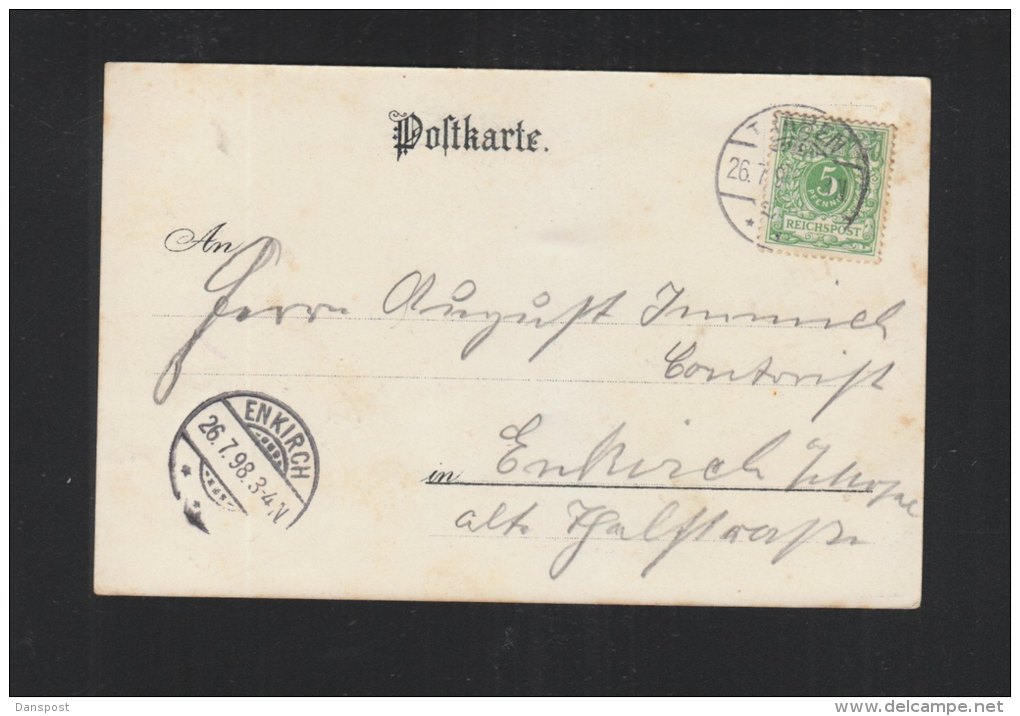 Postkarte.
26.7
5
PFENNIG
REICHSPOST
An
Herrn August Immich
Contorist
in Enkirch Mosel
alte Thalstraße
ENKIRCH
26.7.98.3-4N
Danspost
www.delcampe.net